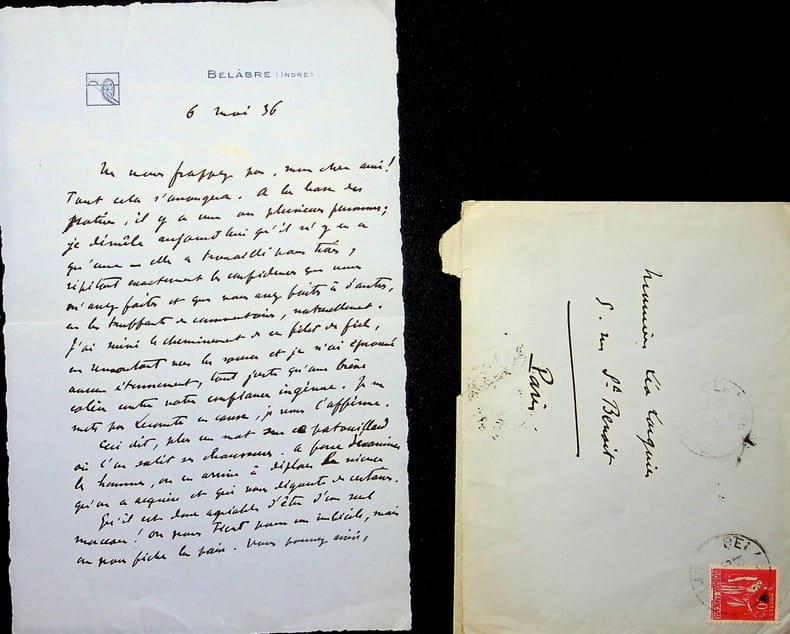 BELÂBRE (INDRE)
6 mai 36
Ne vous frappez pas, mon cher ami !
Tout cela s'arrangera. A la base des
, il y a une ou plusieurs personnes ;
je démêle aujourd'hui qu'il n'y en a
qu'une — elle a travaillé pour trois,
répétant exactement les confidences que vous
m'avez faites et que vous avez faites à d'autres,
en les truffant de commentaires, naturellement.
J'ai suivi le cheminement de ce filet de fiel,
en remontant vers la source et je n'ai éprouvé
aucun étonnement, tout juste qu'une brève
colère contre votre confiance ingénue. Je ne
mets pas Lecomte en cause, je vous l'affirme.
Ceci dit, plus un mot sur ce patouillard
où l'on salit ses chaussures. A force d'examiner
les hommes, on en arrive à déplorer la science
qu'on a acquise et qui vous dégoûte de certains.
Qu'il est donc agréable d'être d'un seul
morceau ! On vous tient pour un imbécile, mais
on vous fiche la paix. Vous pouvez ainsi,
Monsieur Léo Larguier
5. rue St Benoit
Paris
BEL
POSTES